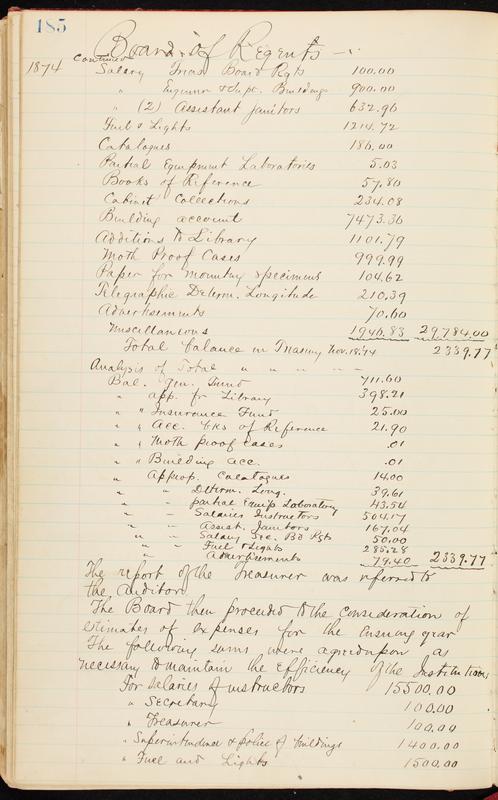 185
Board of Regents
continued
1874 Salary Treas Board Rgts 100.00
" Engineer & Supt. Buildings 900.00
" (2) Assistant Janitors 632.96
Fuel & Lights 1214.72
Catalogues 186.00
Partial Equipment Laboratories 5.03
Books of Reference 57.80
Cabinet Collections 234.08
Building account 7473.36
Additions to Library 1101.79
Moth Proof Cases 999.99
Paper for mounting specimens 104.62
Telegraphic Determ. Longitude 210.39
Advertisements 70.60
Miscellaneous 1946.83 29,784.00
Total balance in Treasury Nov. 18. '74 2339.77
Analysis of Total " " " " "
Bal. Gen. Fund 711.60
" app. fr Library 398.21
" " Insurance Fund 25.00
" " Acc. bks of Reference 21.90
" " Moth proof cases .01
" " Building acc. .01
" Approp. Catalogues 14.00
" " Determ. Long. 39.61
" " partial Equip Laboratory 43.54
" " Salaries Instructors 504.17
" " Assist. Janitors 167.04
" " Salary Sec. Bd Rgts 50.00
" " Fuel & Lights 285.28
" Advertisements 79.40 2339.77
The report of the Treasurer was referred to
the auditor
The Board then proceeded to the consideration of
estimates of expenses for the ensuing year
The following sums were agreed upon as
necessary to maintain the efficiency of the Institutions
For salaries of instructors 15500.00
" Secretary 100.00
" Treasurer 100.00
" Superintendence & police of buildings 1400.00
" Fuel and Lights 1500.00